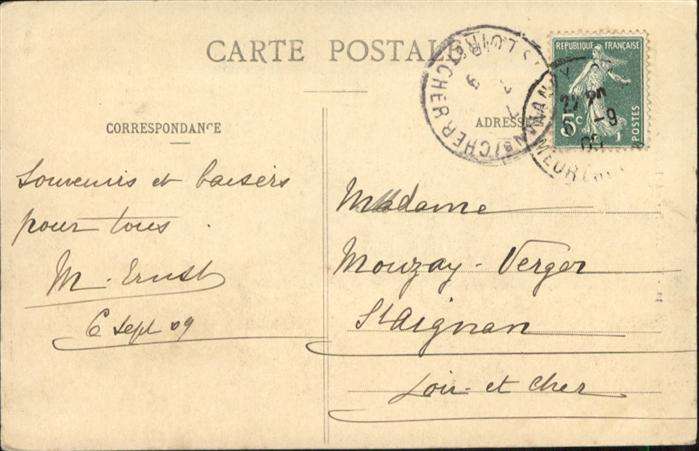 CARTE POSTALE
CORRESPONDANCE
ADRESSE
RÉPUBLIQUE FRANÇAISE
5c
POSTES
NANCY
MEURTHE
CHER
Souvenirs et baisers
pour tous
M. Ernst
6 Sept 09
Madame
Mouzay-Verger
St Aignan
Loir-et-Cher